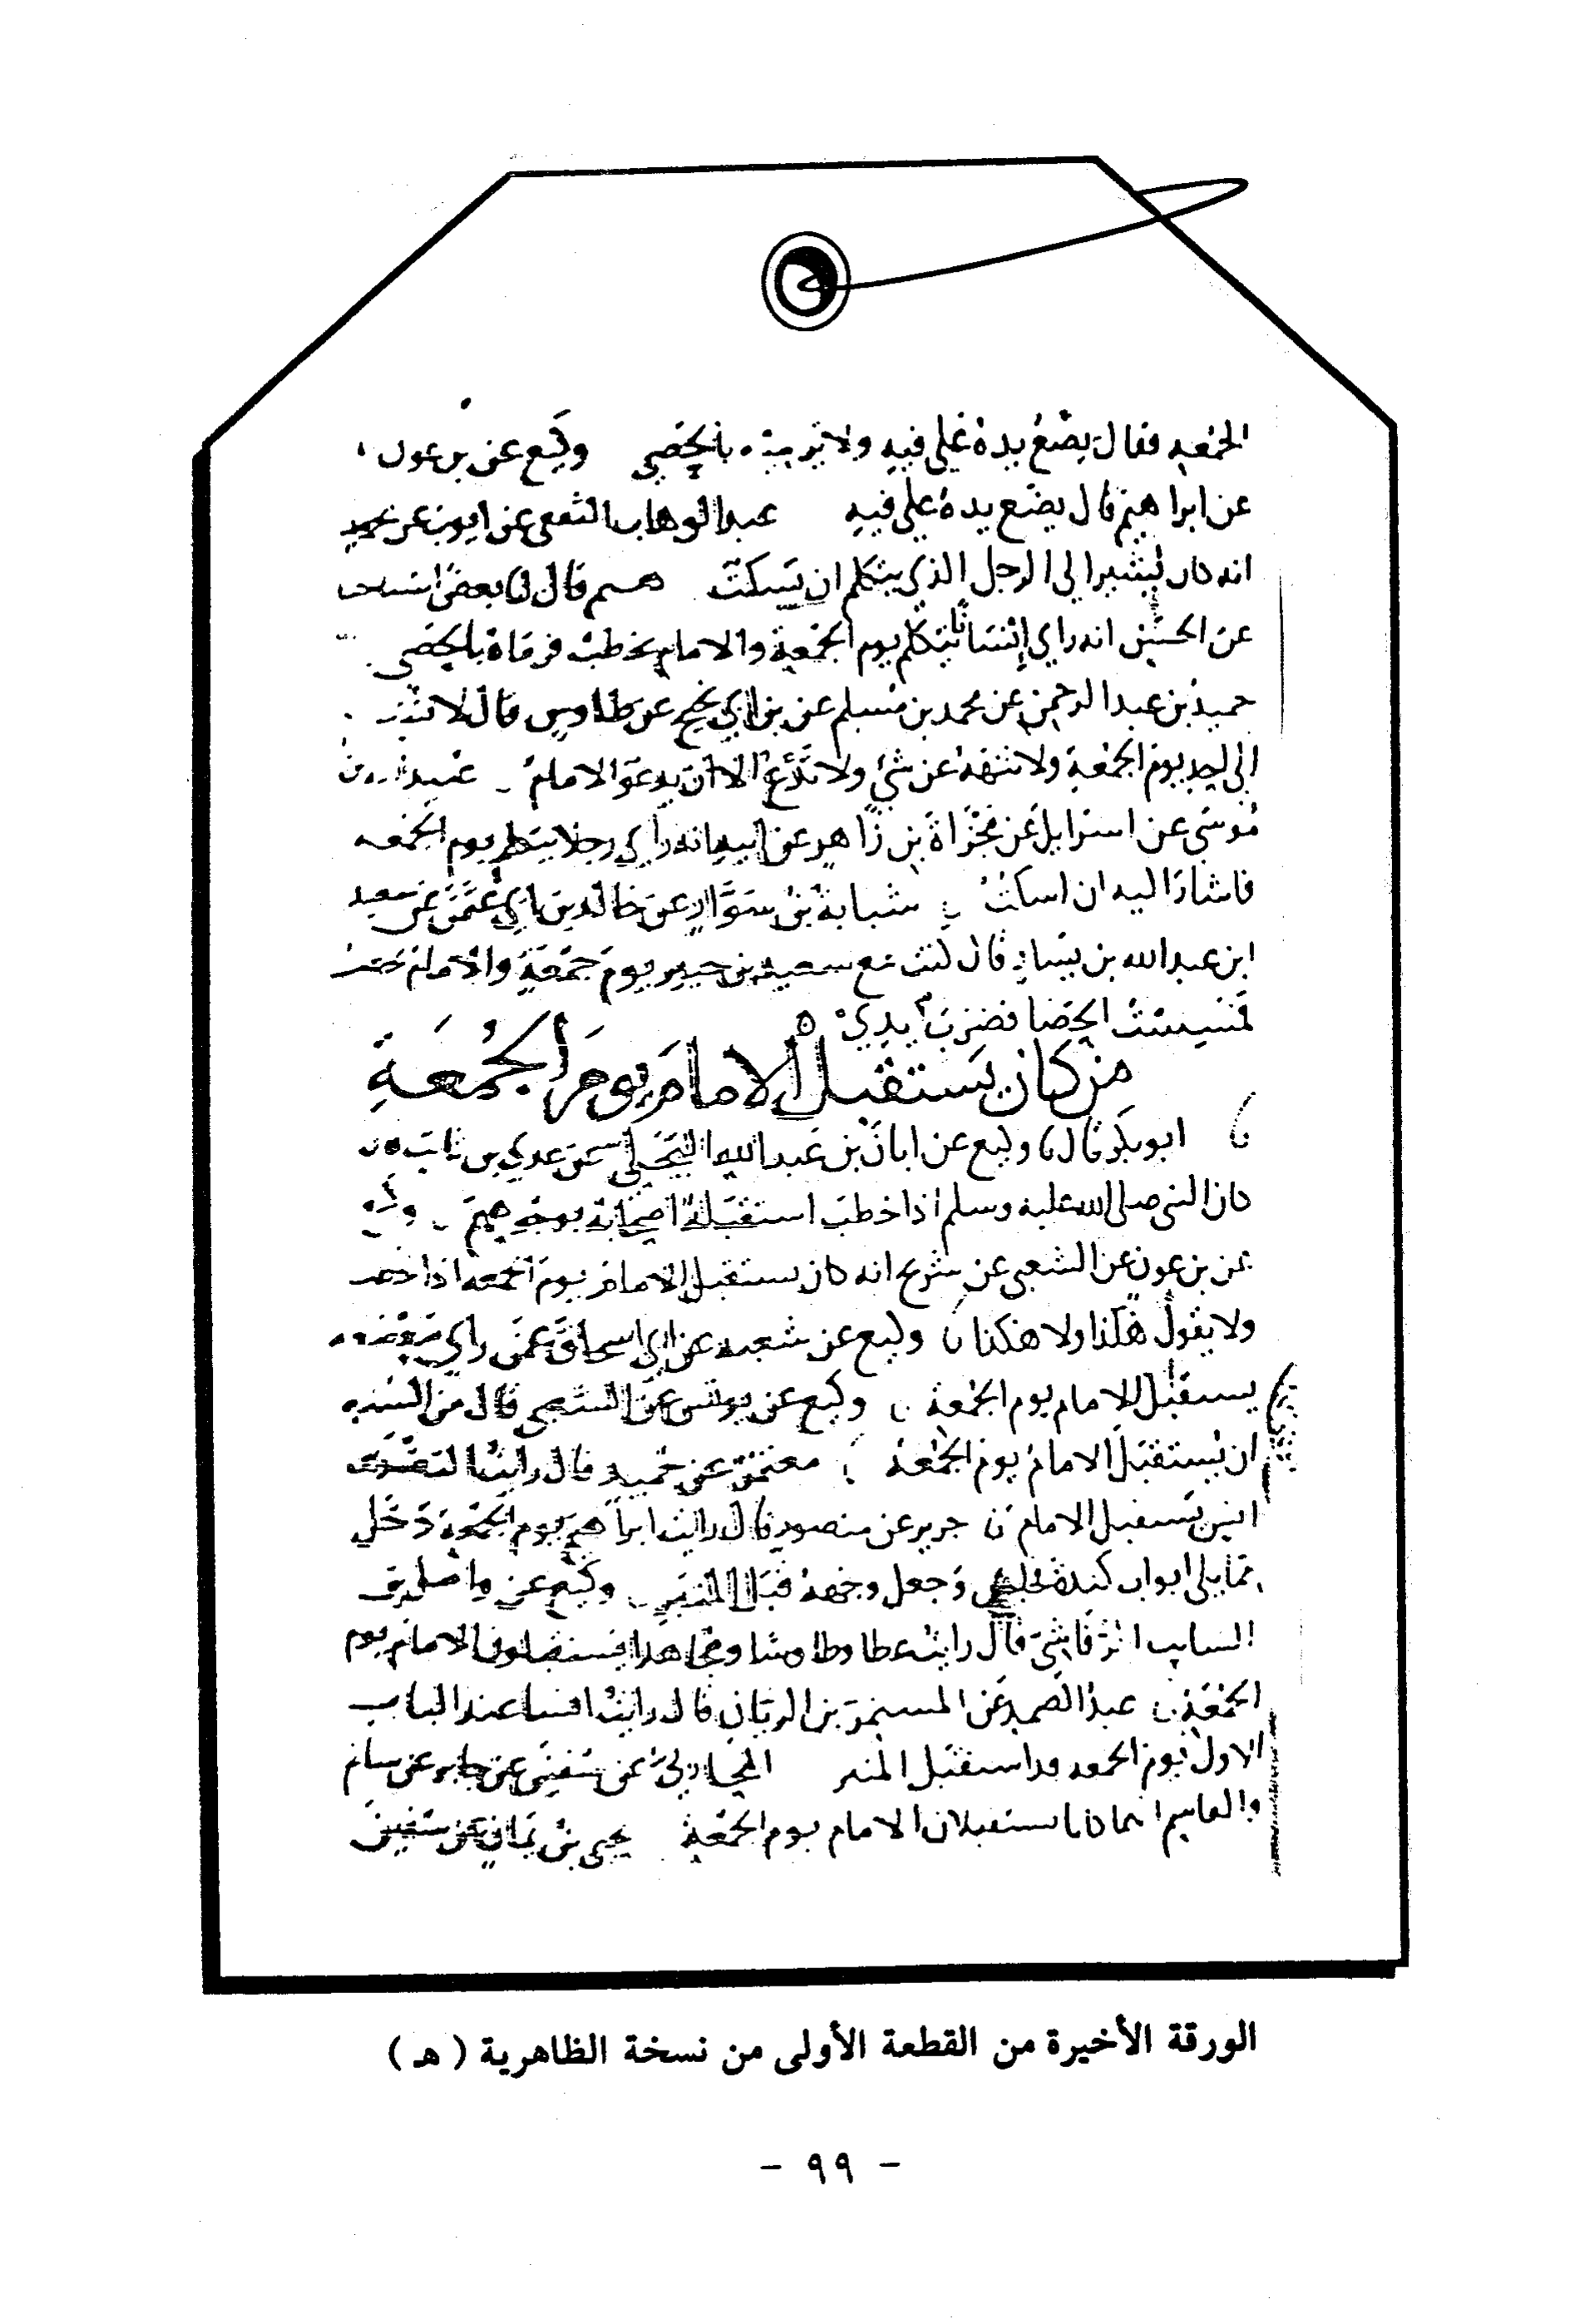 الجمعه فقال يضع يده على فيه ولا يرميه بالحصى وكيع عن بن عون
عن ابراهيم قال يضع يده على فيه عبد الوهاب الثقفي عن ايوب عن محمد
انه كان يشير الى الرجل الذي يتكلم ان يسكت هشيم قال انا بعض
عن الحسن انه راى انسانا يتكلم يوم الجمعة والامام يخطب فرماه بالحصى
حميد بن عبد الرحمن عن محمد بن مسلم عن بن ابي نجيح عن طاوس قال لا تشر
الى احد يوم الجمعة ولا تنهه عن شي ولا تدع الا ان يدعو الامام
موسى عن اسرايل عن مجزاة بن زاهر عن ابيه انه راى رجلا يتكلم يوم الجمعه
فاشار اليه ان اسكت شبابة بن سوار عن خالد بن ابي عثمن عن سعيد
ابن عبد الله بن يسار قال كنت مع سعيد بن جبير يوم جمعة والامام يخطب
فمسست الحصا فضرب يدي
من كان يستقبل الامام يوم الجمعة
ابو بكر قال نا وكيع عن ابان بن عبد الله البجلي عن عدي بن ثابت قال
كان النبي صلى الله عليه وسلم اذا خطب استقبله اصحابه بوجوههم وكيع
عن بن عون عن الشعبي عن شريح انه كان يستقبل الامام يوم الجمعه اذا خطب
ولا يقول هكذا ولا هكذا نا وكيع عن شعبه عن ابي اسحاق عمن راى
يستقبل الامام يوم الجمعة وكيع عن يونس عن الشعبي قال من السنه
ان يستقبل الامام يوم الجمعة معتمر عن حميد قال رايت
انس يستقبل الامام نا جرير عن منصور قال رايت ابراهيم يوم الجمعة دخل
مما يلي ابواب كندة فجلس وجعل وجهه قبل المنبر وكيع عن واصل بن
السايب الرقاشي قال رايت عطا وطاوسا ومجاهدا يستقبلون الامام يوم
الجمعة عبد الصمد عن المستمر بن الريان قال رايت انسا عند الباب
الاول يوم الجمعه قد استقبل المنبر المحاربي عن سفين عن جابر عن سالم
والقاسم انهما كانا يستقبلان الامام يوم الجمعة يحيى بن يمان عن سفين
الورقة الأخيرة من القطعة الأولى من نسخة الظاهرية ( هـ )
- ٩٩ -